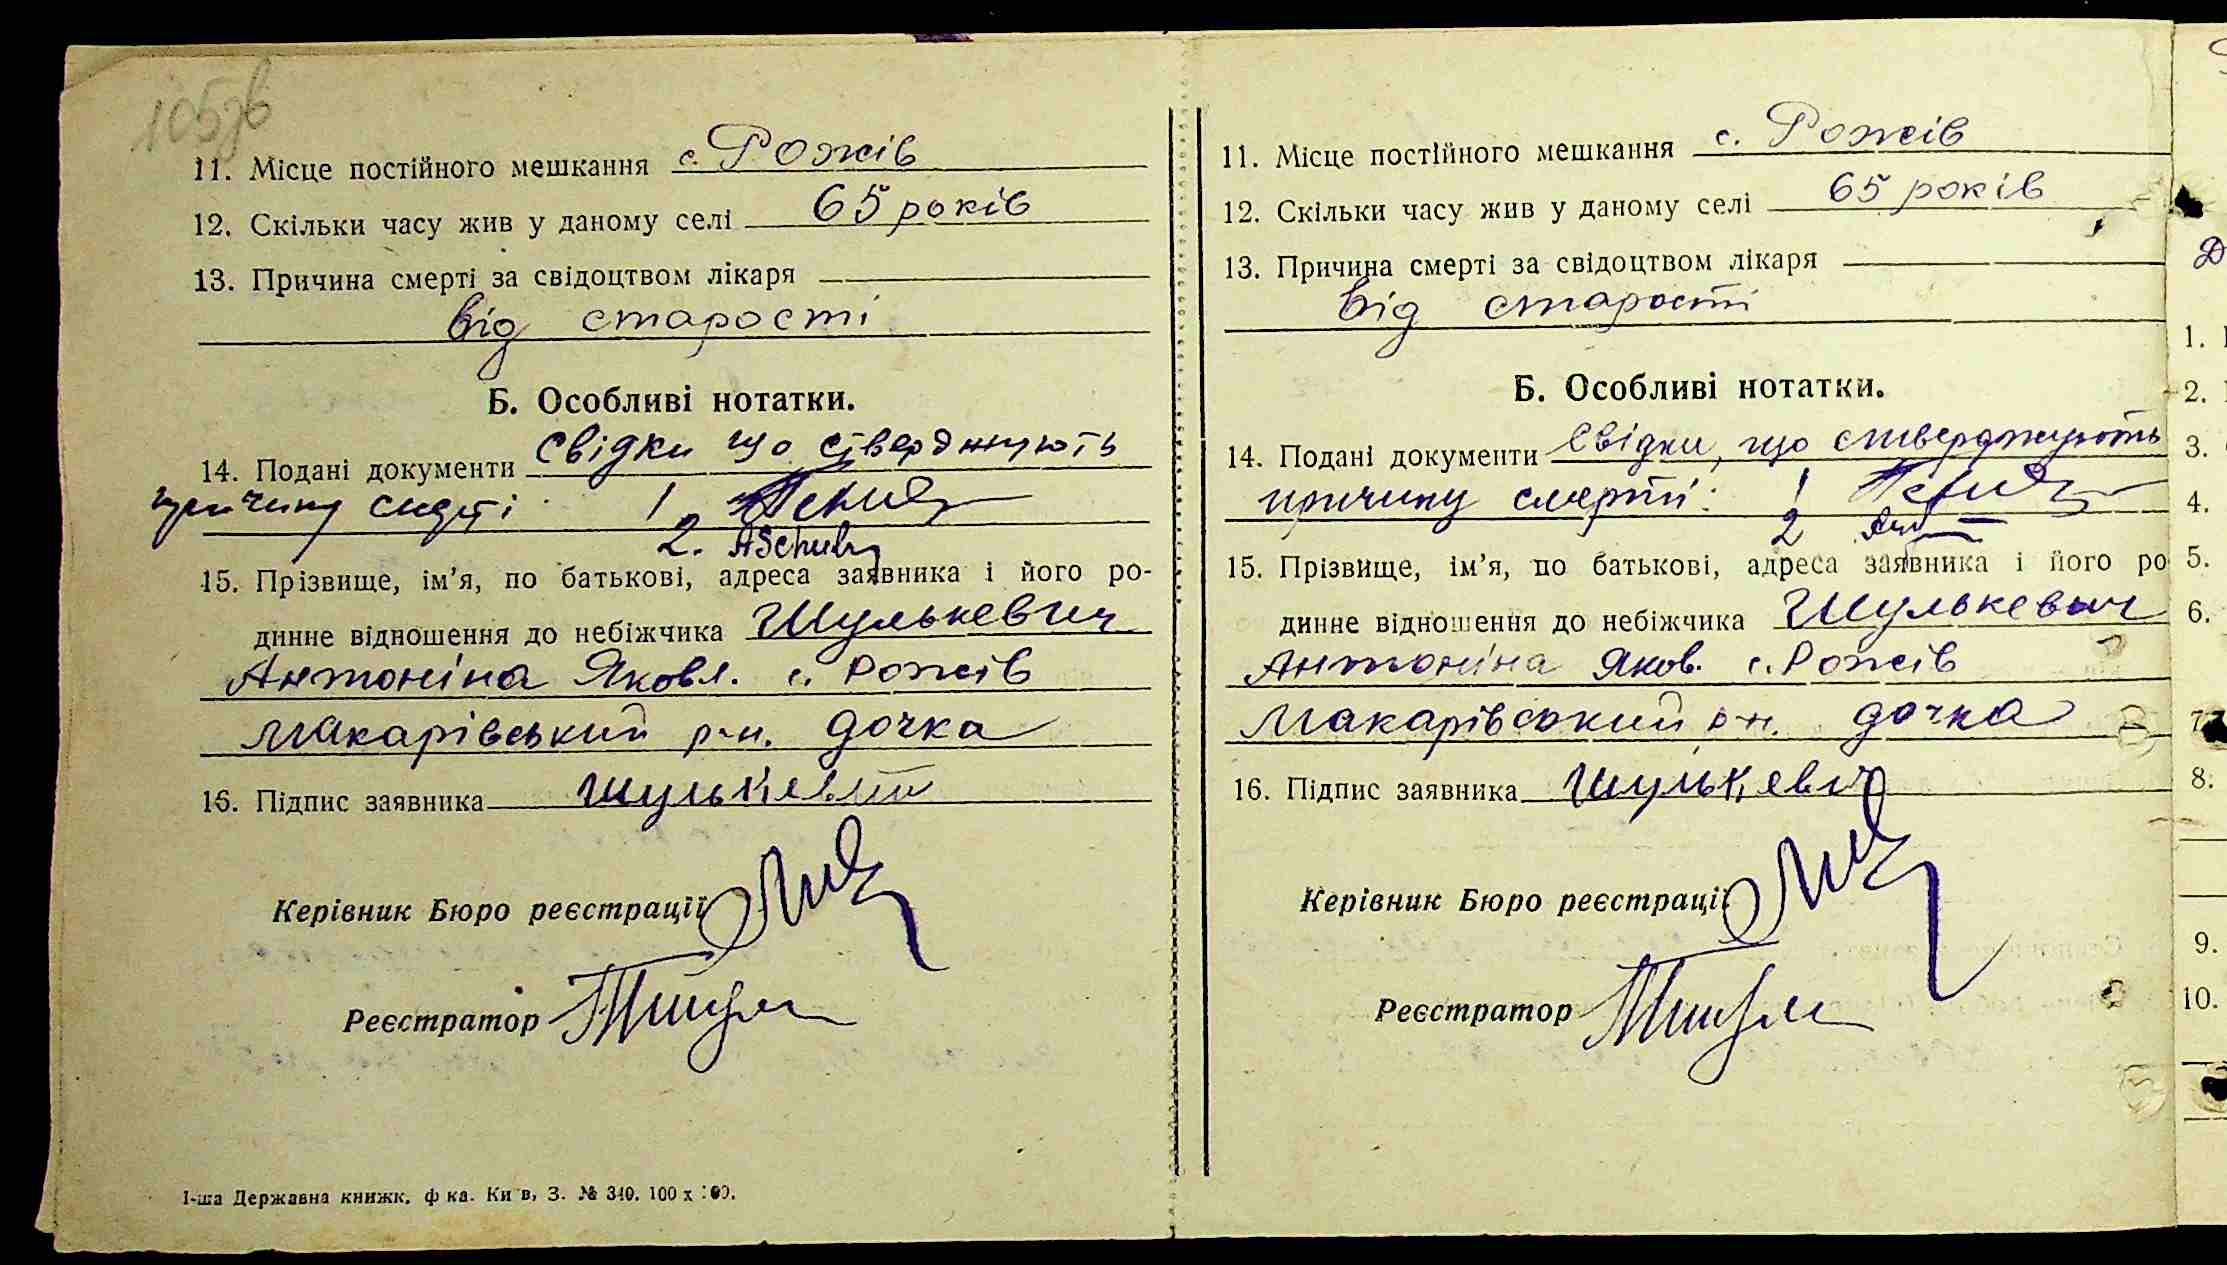 105зв
11. Місце постійного мешкання с. Рожів
12. Скільки часу жив у даному селі 65 років
13. Причина смерті за свідоцтвом лікаря
від старості
Б. Особливі нотатки.
14. Подані документи свідки що стверджують
причину смерті 1
2. ASchulz
15. Прізвище, ім'я, по батькові, адреса заявника і його ро-
динне відношення до небіжчика Шулькевич
Антоніна Яковл. с. Рожів
Макарівський р-н. дочка
16. Підпис заявника Шулькевич
Керівник Бюро реєстрації
Реєстратор
І-ша Державна книжк. ф ка. Ки в, З. № 340. 100 х 100.
11. Місце постійного мешкання с. Рожів
12. Скільки часу жив у даному селі 65 років
13. Причина смерті за свідоцтвом лікаря
від старості
Б. Особливі нотатки.
14. Подані документи Свідки, що стверджують
причину смерті: 1
2
15. Прізвище, ім'я, по батькові, адреса заявника і його ро
динне відношення до небіжчика Шулькевич
Антоніна Яков. с. Рожів
Макарівський р-н. дочка
16. Підпис заявника Шулькевич
Керівник Бюро реєстрації
Реєстратор
1.
2.
3.
4.
5.
6.
7
8.
9.
10.